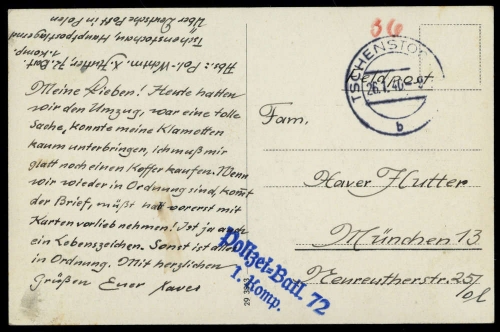 Abs.: Pol.-Wntm. X. Hutter, 72. Batl.
1. Komp.
Tschenstochau, Hauptpostlagernd
Über Deutsche Post in Polen
Meine Lieben! Heute hatten
wir den Umzug, war eine tolle
Sache, konnte meine Klamotten
kaum unterbringen, ich muß mir
glatt noch einen Koffer kaufen. Wenn
wir wieder in Ordnung sind, kommt
der Brief, müßt halt vorerst mit
Karten vorlieb nehmen! Ist ja auch
ein Lebenszeichen. Sonst ist alles
in Ordnung. Mit herzlichen
Grüßen Euer Xaver
36
Feldpost
TSCHENSTOCHAU
26.1.40.-9
b
Fam.
Xaver Hutter
München 13
Neureutherstr. 25/
Polizei-Batl. 72
1. Komp.